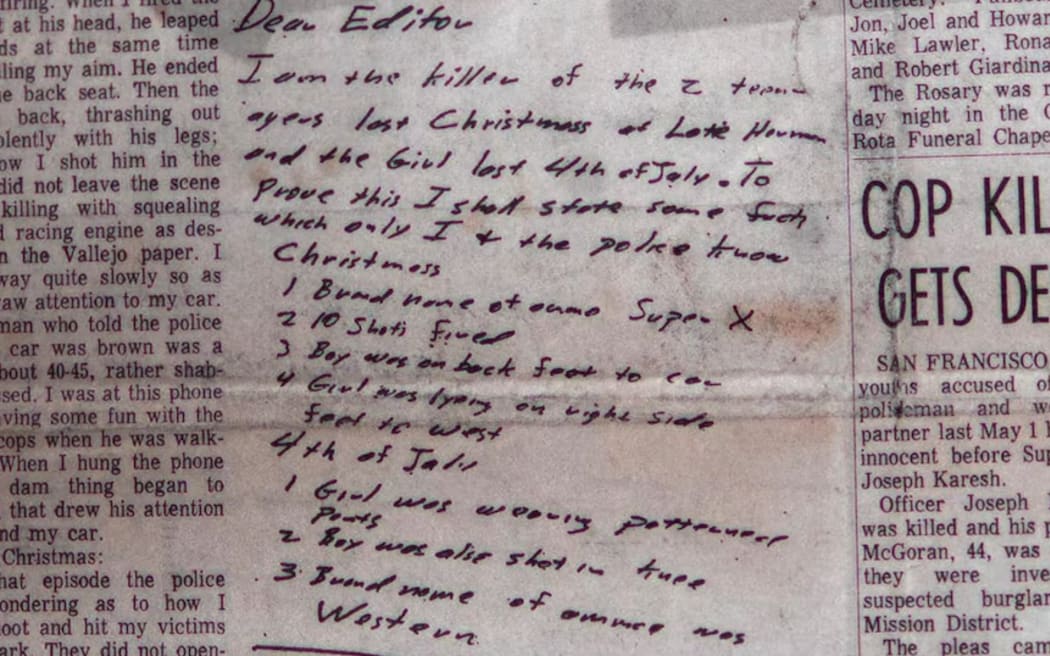 firing. When I fired the
t at his head, he leaped
ds at the same time
ling my aim. He ended
e back seat. Then the
back, thrashing out
olently with his legs;
ow I shot him in the
did not leave the scene
killing with squealing
d racing engine as des-
n the Vallejo paper. I
way quite slowly so as
raw attention to my car.
man who told the police
car was brown was a
bout 40-45, rather shab-
ssed. I was at this phone
ving some fun with the
cops when he was walk-
When I hung the phone
dam thing began to
that drew his attention
nd my car.
Christmas:
hat episode the police
ondering as to how I
oot and hit my victims
ark. They did not open-
Dear Editor
I am the killer of the 2 teen-
agers last Christmass at Lake Herman
and the Girl last 4th of July. To
Prove this I shall state some facts
which only I + the police know
Christmass
1 Brand name of ammo Super X
2 10 Shots fired
3 Boy was on back feet to car
4 Girl was lyeing on right side
feet to west
4th of July
1 Girl was wearing patterned
pants
2 Boy was also shot in knee
3 Brand name of ammo was
Western
Jon, Joel and Howar
Mike Lawler, Rona
and Robert Giardina
The Rosary was r
day night in the C
Rota Funeral Chape
COP KIL
GETS DE
SAN FRANCISCO
youths accused of
policeman and w
partner last May 1 
innocent before Sup
Joseph Karesh.
Officer Joseph
was killed and his p
McGoran, 44, was
they were inve
suspected burglar
Mission District.
The pleas cam